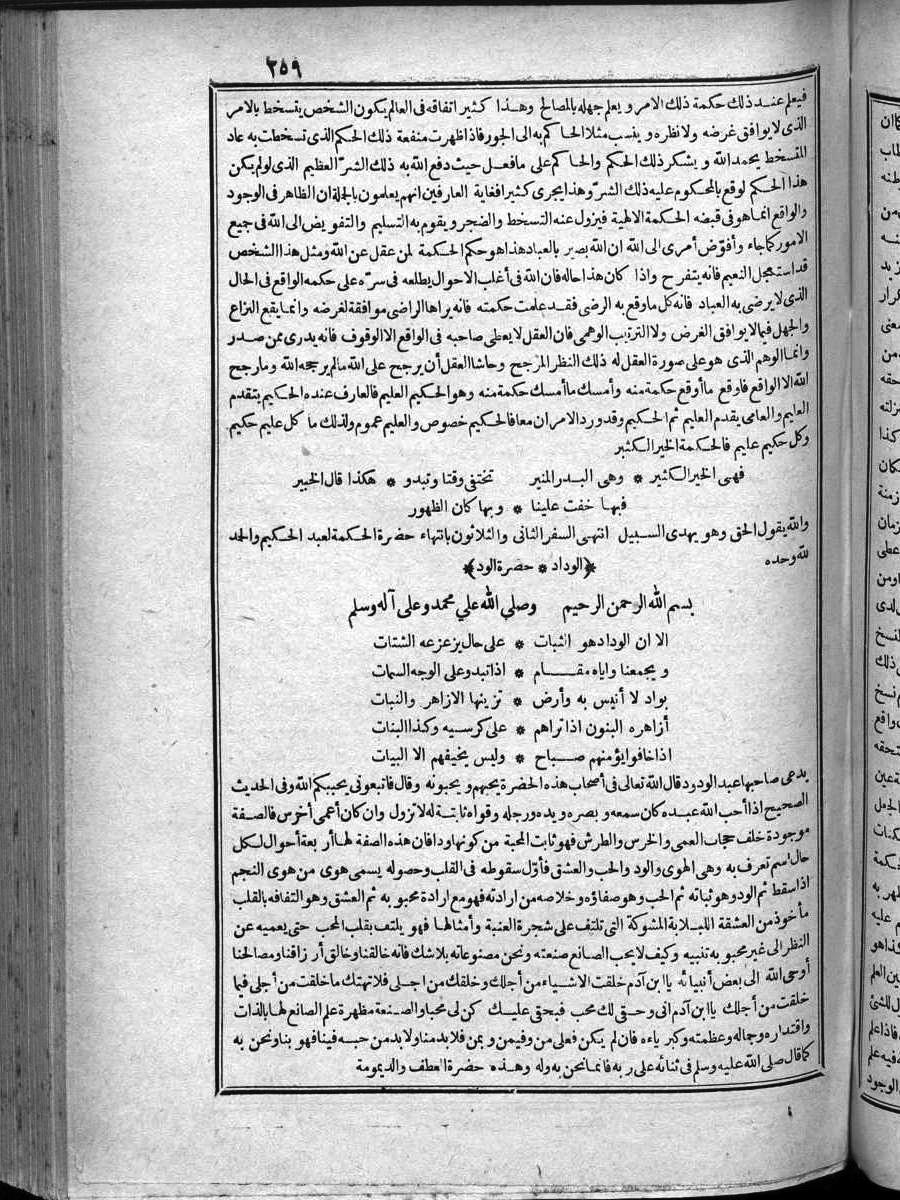 ٢٥٩
فيعلم عند ذلك حكمة ذلك الامر ويعلم جهله بالمصالح وهذا كثير اتفاقه فى العالم يكون الشخص يتسخط بالامر
الذى لا يوافق غرضه ولا نظره وينسب مثلا الحاكم به الى الجور فاذا ظهرت منفعة ذلك الحكم الذى تسخطت به عاد
المتسخط يحمد الله ويشكر ذلك الحكم والحاكم على ما فعل حيث دفع الله به ذلك الشر العظيم الذى لو لم يكن
هذا الحكم لوقع بالمحكوم عليه ذلك الشر وهذا يجرى كثيرا فغاية العارفين انهم يعلمون بالجملة ان الظاهر فى الوجود
والواقع انما هو فى قبضة الحكمة الالهية فيزول عنه التسخط والضجر ويقوم به التسليم والتفويض الى الله فى جميع
الامور كما جاء وأفوّض أمرى الى الله ان الله بصير بالعباد هذا هو حكم الحكمة لمن عقل عن الله ومثل هذا الشخص
قد استعجل النعيم فانه يتفرح واذا كان هذا حاله فان الله فى أغلب الاحوال يطلعه فى سرّه على حكمه الواقع فى الحال
الذى لا يرضى به العباد فانه كل ما وقع به الرضى فقد علمت حكمته فانه يراها الراضى موافقة لغرضه وانما يقع النزاع
والجهل فيما لا يوافق الغرض ولا الترتب الوهمى فان العقل لا يعطى صاحبه فى الواقع الا الوقوف فانه يدرى ممن صدر
وانما الوهم الذى هو على صورة العقل له ذلك النظر المرجح وحاشا العقل أن يرجح على الله مالم يرجحه الله وما رجح
الله الا الواقع فاوقع ما أوقع حكمة منه وأمسك ما أمسك حكمة منه وهو الحكيم العليم فالعارف عنده الحكيم يتقدم
العليم والعامى يقدم العليم ثم الحكيم وقد ورد الامران معا فالحكيم خصوص والعليم عموم ولذلك ما كل عليم حكيم
وكل حكيم عليم فالحكمة الخير الكثير
فهى الخير الكثير * وهى البدر المنير تختفى وقتا وتبدو * هكذا قال الخبير
فبها خفت علينا * وبها كان الظهور
والله يقول الحق وهو يهدى السبيل انتهى السفر الثانى والثلاثون بانتهاء حضرة الحكمة لعبد الحكيم والحمد
لله وحده
﴿الوداد * حضرة الود﴾
بسم الله الرحمن الرحيم وصلى الله على محمد وعلى آله وسلم
الا ان الوداد هو الثبات * على حال يزعزعه الشتات
ويجمعنا واياه مقام * اذا تبدو على الوجه السمات
بواد لا أنيس به وأرض * تزينها الازاهر والنبات
أزاهره البنون اذا تراهم * على كرسيه وكذا البنات
اذا خافوا يؤمنهم صباح * وليس يخيفهم الا البيات
يدعى صاحبها عبد الودود قال الله تعالى فى أصحاب هذه الحضرة يحبهم ويحبونه وقال فاتبعونى يحببكم الله وفى الحديث
الصحيح اذا أحب الله عبده كان سمعه وبصره ويده ورجله وقواه ثابتة له لا تزول وان كان أعمى أخرس فالصفة
موجودة خلف حجاب العمى والخرس والطرش فهو ثابت المحبة من كونها ودا فان هذه الصفة لها أربعة أحوال لكل
حال اسم تعرف به وهى الهوى والود والحب والعشق فأوّل سقوطه فى القلب وحصوله يسمى هوى من هوى النجم
اذا سقط ثم الود وهو ثباته ثم الحب وهو صفاؤه وخلاصه من ارادته فهو مع ارادة محبوبه ثم العشق وهو التفافه بالقلب
مأخوذ من العشقة اللبلابة المشوكة التى تلتف على شجرة العنبة وأمثالها فهو يلتف بقلب المحب حتى يعميه عن
النظر الى غير محبوبه تنبيه وكيف لا يحب الصانع صنعته ونحن مصنوعاته بلا شك فانه خالقنا وخالق أرزاقنا ومصالحنا
أوحى الله الى بعض أنبيائه يا ابن آدم خلقت الاشياء من أجلك وخلقتك من اجلى فلا تهتك ما خلقت من أجلى فيما
خلقت من أجلك يا ابن آدم انى وحقى لك محب فبحقى عليك كن لى محبا والصنعة مظهرة علم الصانع لها بالذات
واقتداره وجماله وعظمته وكبرياءه فان لم يكن فعلى من وفيمن وبمن فلا بد منا ولا بد من حبه فينا فهو بنا ونحن به
كما قال صلى الله عليه وسلم فى ثنائه على ربه فانما نحن به وله وهذه حضرة العطف والديمومة